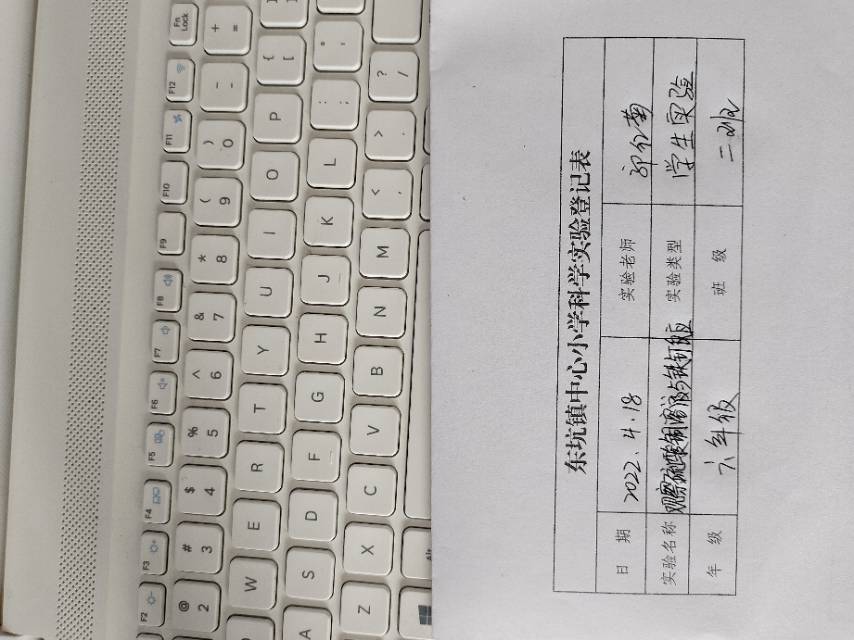 东坑镇中心小学科学实验登记表
日 期 2022.4.18 实验老师
实验名称 观察硫酸铜溶液与铁钉反应 实验类型 学生实验
年 级 六年级 班 级 二班
Fn Lock
F12
F11
F10
F9
F8
F7
F6
F5
F4
F3
F2
+ =
- -
) 0
( 9
* 8
& 7
^ 6
% 5
$ 4
# 3
@ 2
{ [
P
O
I
U
Y
T
R
E
W
" '
: ;
L
K
J
H
G
F
D
S
A
? /
> .
< ,
M
N
B
V
C
X
Z
Alt